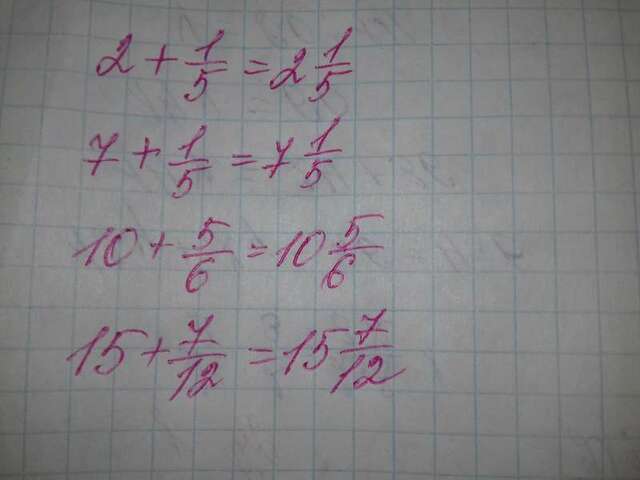 2 + 1/5 = 2 1/5
7 + 1/5 = 7 1/5
10 + 5/6 = 10 5/6
15 + 7/12 = 15 7/12